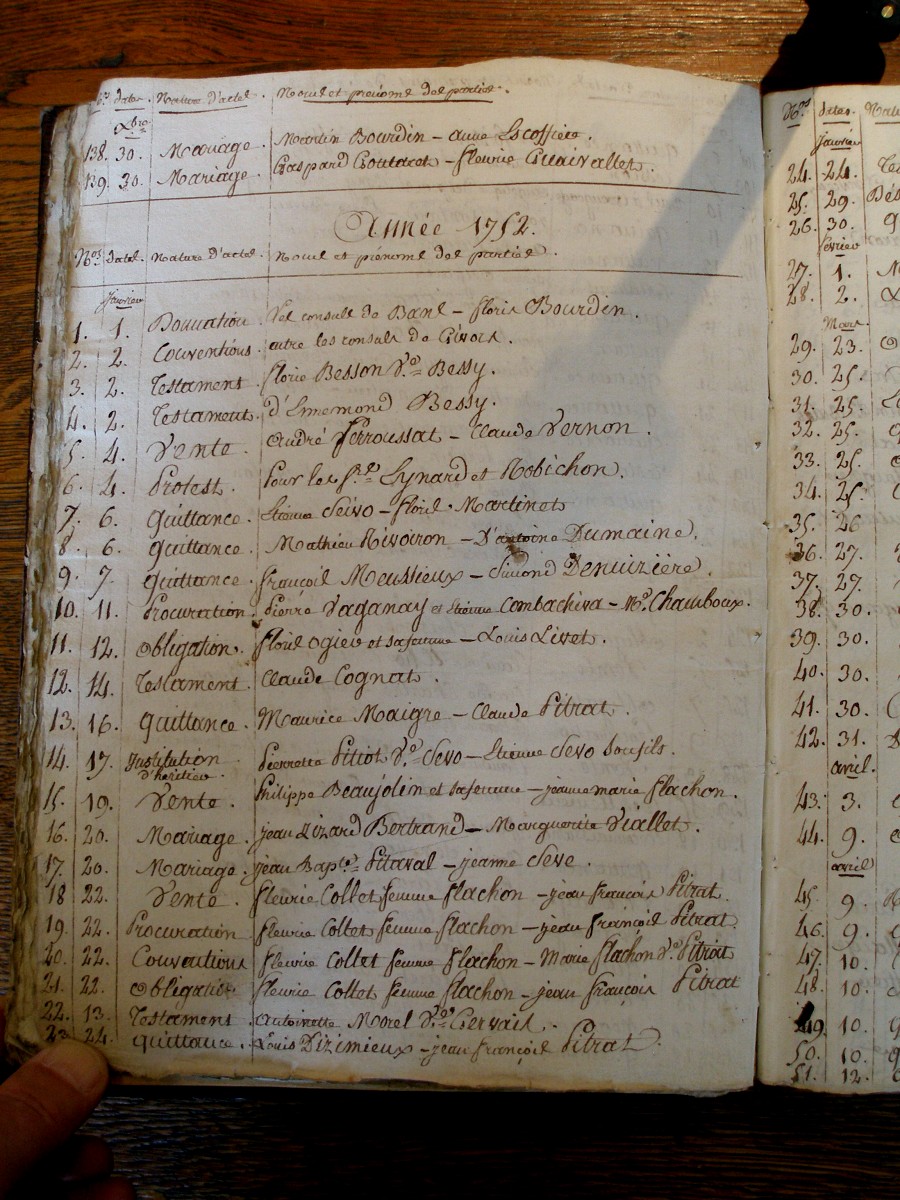 Nos dates. Nature d'actes. Noms et prénoms des parties.
Xbre
138. 30. Mariage. Martin Bourdin – anne Escoffier.
139. 30. Mariage. Gaspard – fleurie
Année 1752.
Nos dates. Nature d'actes. Noms et prénoms des parties.
Janvier
1. 1. Donnation. Les consuls de – floris Bourdin.
2. 2. Conventions. entre les consuls de Givors.
3. 2. Testament. florie Besson Ve. Bessy.
4. 2. Testament. d'Ennemond Bessy.
5. 4. Vente. andré Perroussat – Claude Vernon.
6. 4. Protest. Pour les Srs. Lynard et Robichon.
7. 6. Quittance. Etienne Seivo – floris Martinet
8. 6. Quittance. Mathieu Rivoiron – D'antoine Dumaine.
9. 7. Quittance. françois Meussieux – Simond Denuizière.
10. 11. Procuration. Pierre Vaganay et Etienne Combachiva – Me. Chamboux.
11. 12. Obligation. floris Ogier et sa femme – Louis Livet.
12. 14. Testament. Claude Cognat.
13. 16. Quittance. Maurice Maigre – Claude Pitrat.
14. 17. Institution Pierrette Pitiot Ve. Sevo – Etienne Sevo son fils.
d'héritier.
15. 19. Vente. Philippe Beaujolin et sa femme – jeanne marie flachon.
16. 20. Mariage. jean Lizard Bertrand – Marguerite Viallet.
17. 20. Mariage. jean Bapte. Pitaval – jeanne Seve.
18 22. Vente. fleurie Collet femme flachon – jean françois Pitrat.
19. 22. Procuration. fleurie Collet femme flachon – jean françois Pitrat
20. 22. Conventions fleurie Collet femme flachon – Marie flachon Ve. Pitrat
21. 22. Obligation fleurie Collet femme flachon – jean françois Pitrat
22. 13. Testament. antoinette Morel Ve. Gervais.
23 24. Quittance. Louis Dizimieux – jean françois Pitrat.
Nos dates
Janvier
24. 24.
25. 29.
26. 30.
février
27. 1.
28. 2.
Mars
29. 23.
30. 25.
31. 25.
32. 25.
33. 25.
34. 25.
35. 26
36. 27.
37. 27.
38. 30.
39. 30.
40. 30.
41. 30.
42. 31.
avril.
43. 3.
44. 9.
avril
45. 9.
46. 9.
47. 10.
48. 10.
49. 10.
50. 10.
51. 12.